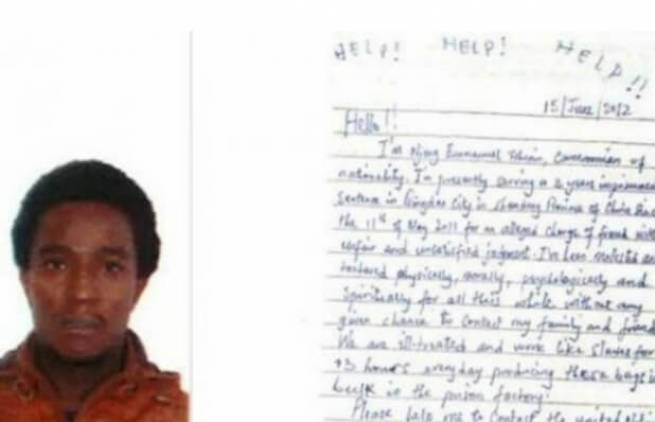 HELP! HELP! HELP!!
15/June/2012
Hello!!
I'm Njong Emmanuel Tohnain, Cameroonian of
nationality. I'm presently serving a 3 years imprisonment
sentence in Qingdao City in Shandong Province of China since
the 11th of May 2011 for an alleged charge of fraud with
unfair and unsatisfied judgment. I've been molested and
tortured physically, morally, psychologically and
spiritually for all this while without any
given chance to contact my family and friends
We are ill-treated and work like slaves for
13 hours everyday producing these bags in
bulk in the prison factory.
Please help me to contact the united